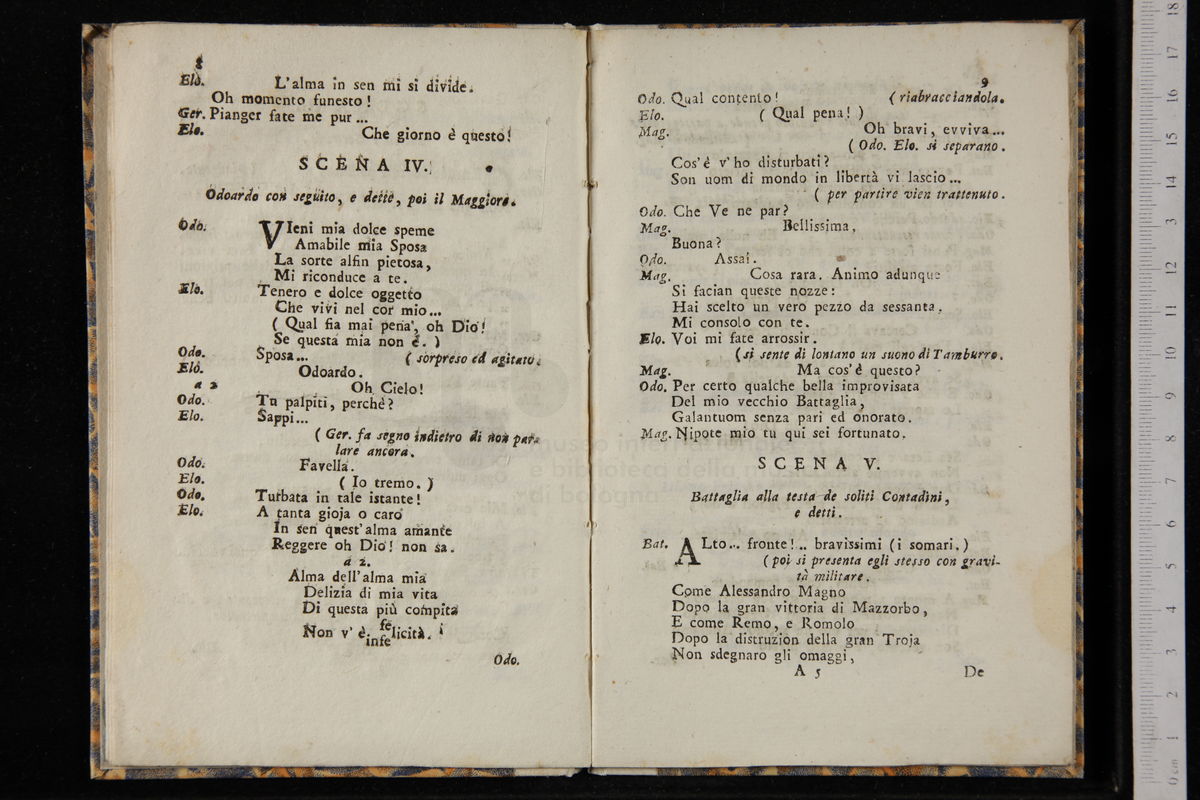 8
Elo. L'alma in sen mi si divide.
Oh momento funesto!
Ger. Pianger fate me pur...
Elo. Che giorno è questo!
SCENA IV.
Odoardo con seguito, e dette, poi il Maggiore.
Odo. VIeni mia dolce speme
Amabile mia Sposa
La sorte alfin pietosa,
Mi riconduce a te.
Elo. Tenero e dolce oggetto
Che vivi nel cor mio...
( Qual fia mai pena, oh Dio!
Se questa mia non è. )
Odo. Sposa... ( sorpreso ed agitato.
Elo. Odoardo.
a 2 Oh Cielo!
Odo. Tu palpiti, perchè?
Elo. Sappi...
( Ger. fa segno indietro di non par-
lare ancora.
Odo. Favella.
Elo. ( Io tremo. )
Odo. Turbata in tale istante!
Elo. A tanta gioja o caro
In sen quest'alma amante
Reggere oh Dio! non sa.
a 2.
Alma dell'alma mia
Delizia di mia vita
Di questa più compita
Non v' è fe
infe licità.
Odo.
9
Odo. Qual contento! ( riabracciandola.
Elo. ( Qual pena! )
Mag. Oh bravi, evviva...
( Odo. Elo. si separano.
Cos'è v'ho disturbati?
Son uom di mondo in libertà vi lascio...
( per partire vien trattenuto.
Odo. Che Ve ne par?
Mag. Bellissima,
Buona?
Odo. Assai.
Mag. Cosa rara. Animo adunque
Si facian queste nozze:
Hai scelto un vero pezzo da sessanta,
Mi consolo con te.
Elo. Voi mi fate arrossir.
( si sente di lontano un suono di Tamburro.
Mag. Ma cos'è questo?
Odo. Per certo qualche bella improvisata
Del mio vecchio Battaglia,
Galantuom senza pari ed onorato.
Mag. Nipote mio tu qui sei fortunato.
SCENA V.
Battaglia alla testa de soliti Contadini,
e detti.
Bat. ALto... fronte!.. bravissimi (i somari.)
( poi si presenta egli stesso con gravi-
tà militare.
Come Alessandro Magno
Dopo la gran vittoria di Mazzorbo,
E come Remo, e Romolo
Dopo la distruzion della gran Troja
Non sdegnaro gli omaggi,
A 5 De
museo internazionale
e biblioteca della musica
di bologna
0 cm 1 2 3 4 5 6 7 8 9 10 11 12 13 14 15 16 17 18